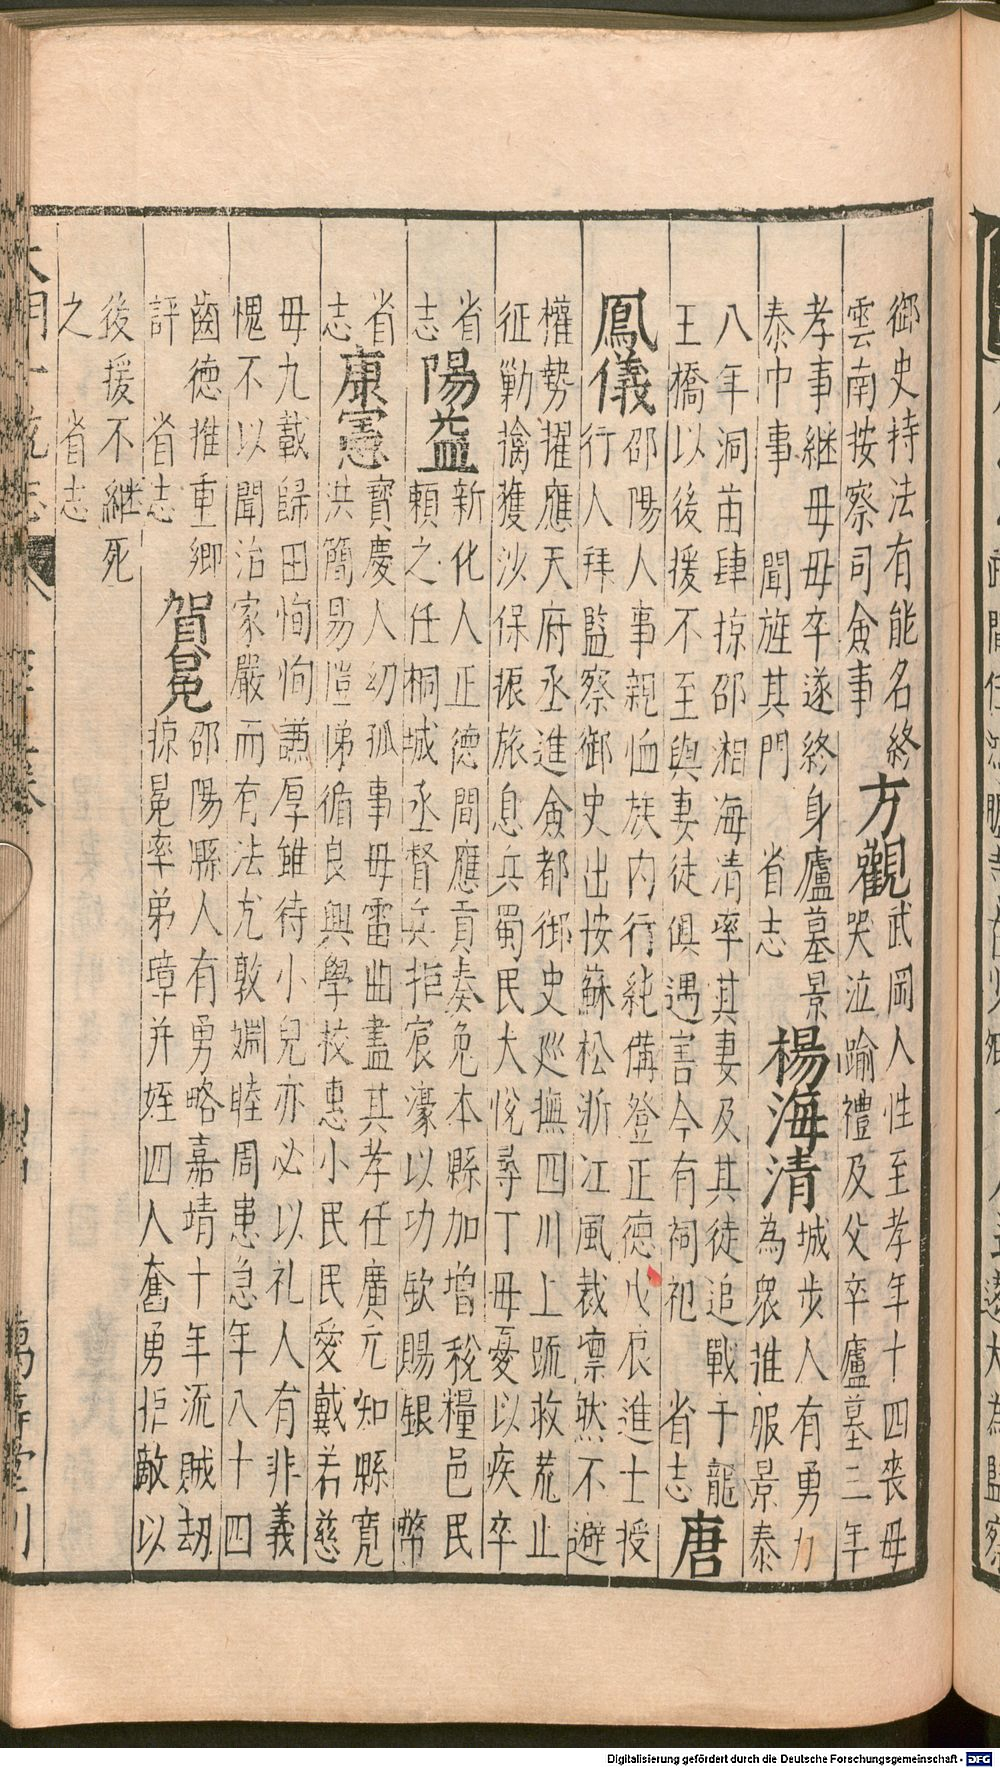 御史持法有能名終
雲南按察司僉事
方觀
武岡人性至孝年十四喪母
哭泣踰禮及父卒廬墓三年
孝事継母母卒遂終身廬墓景
泰中事 聞旌其門 省志
楊海清
城步人有勇力
為衆推服景泰
八年洞苗肆掠邵湘海清率其妻及其徒追戰于龍
王橋以後援不至與妻徒俱遇害今有祠祀 省志
唐
鳳儀
邵陽人事親恤族内行純備登正德戊辰進士授
行人拜監察御史出按蘇松浙江風裁凛然不避
權勢擢應天府丞進僉都御史廵撫四川上疏救荒止
征勦擒獲沙保振旅息兵蜀民大悅尋丁母憂以疾卒
省
志
陽益
新化人正德間應貢奏免本縣加增稅糧邑民
頼之任桐城丞督兵拒宸濠以功欽賜銀幣
省
志
康憲
寶慶人幼孤事母雷曲盡其孝任廣元知縣寬
洪簡易愷悌循良興學校惠小民民愛戴若慈
母九載歸田恂恂謙厚雖待小兒亦必以礼人有非義
愧不以聞治家嚴而有法尤敦婣睦周患急年八十四
齒德推重鄉
評 省志
賀冕
邵陽縣人有勇略嘉靖十年流賊刼
掠冕率弟璋并姪四人奮勇拒敵以
後援不継死
之 省志
大明一統志
萬壽堂刊
Digitalisierung gefördert durch die Deutsche Forschungsgemeinschaft - DFG